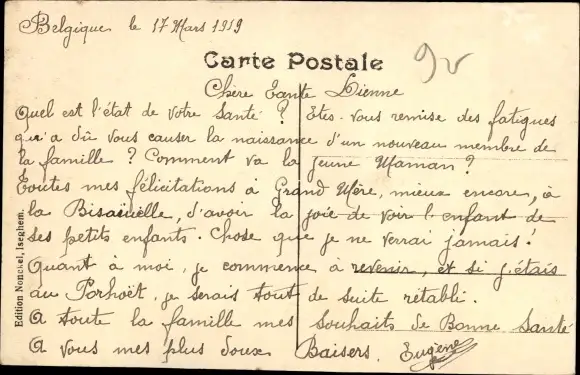 Belgique le 17 Mars 1919
Carte Postale
Chère Tante Lienne
Quel est l'état de votre Santé ? Etes-vous remise des fatigues
qu'a dû vous causer la naissance d'un nouveau membre de
la famille ? Comment va la jeune Maman ?
Toutes mes félicitations à Grand Mère, mieux encore, à
la Bisaïeulle, d'avoir la joie de voir l'enfant de
ses petits enfants. Chose que je ne verrai jamais !
Quant à moi, je commence à revenir, et si j'étais
au Porhoët, je serais tout de suite rétabli.
A toute la famille mes souhaits de Bonne Santé
A vous mes plus doux Baisers. Eugène
Edition Iseghem.